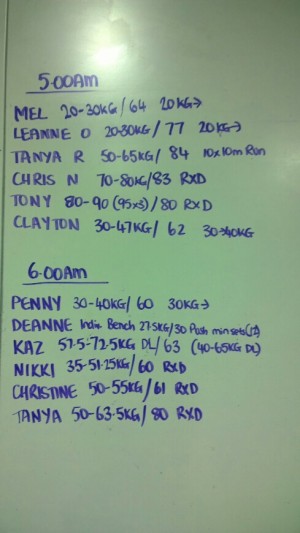 5.00AM
MEL 20-30KG/64 20KG→
LEANNE O 20-30KG/77 20KG→
TANYA R 50-65KG/ 84 10x10m Run
CHRIS N 70-80KG/83 RXD
TONY 80-90 (95x3)/80 RXD
CLAYTON 30-47KG/ 62 30→40KG
6.00AM
PENNY 30-40KG/60 30KG→
DEANNE Incline Bench 27.5KG/30 Push min sets
KAZ 57.5-72.5KG DL/63 (40-65KG DL)
NIKKI 35-51.25KG/60 RXD
CHRISTINE 50-55KG/61 RXD
TANYA 50-63.5KG/80 RXD